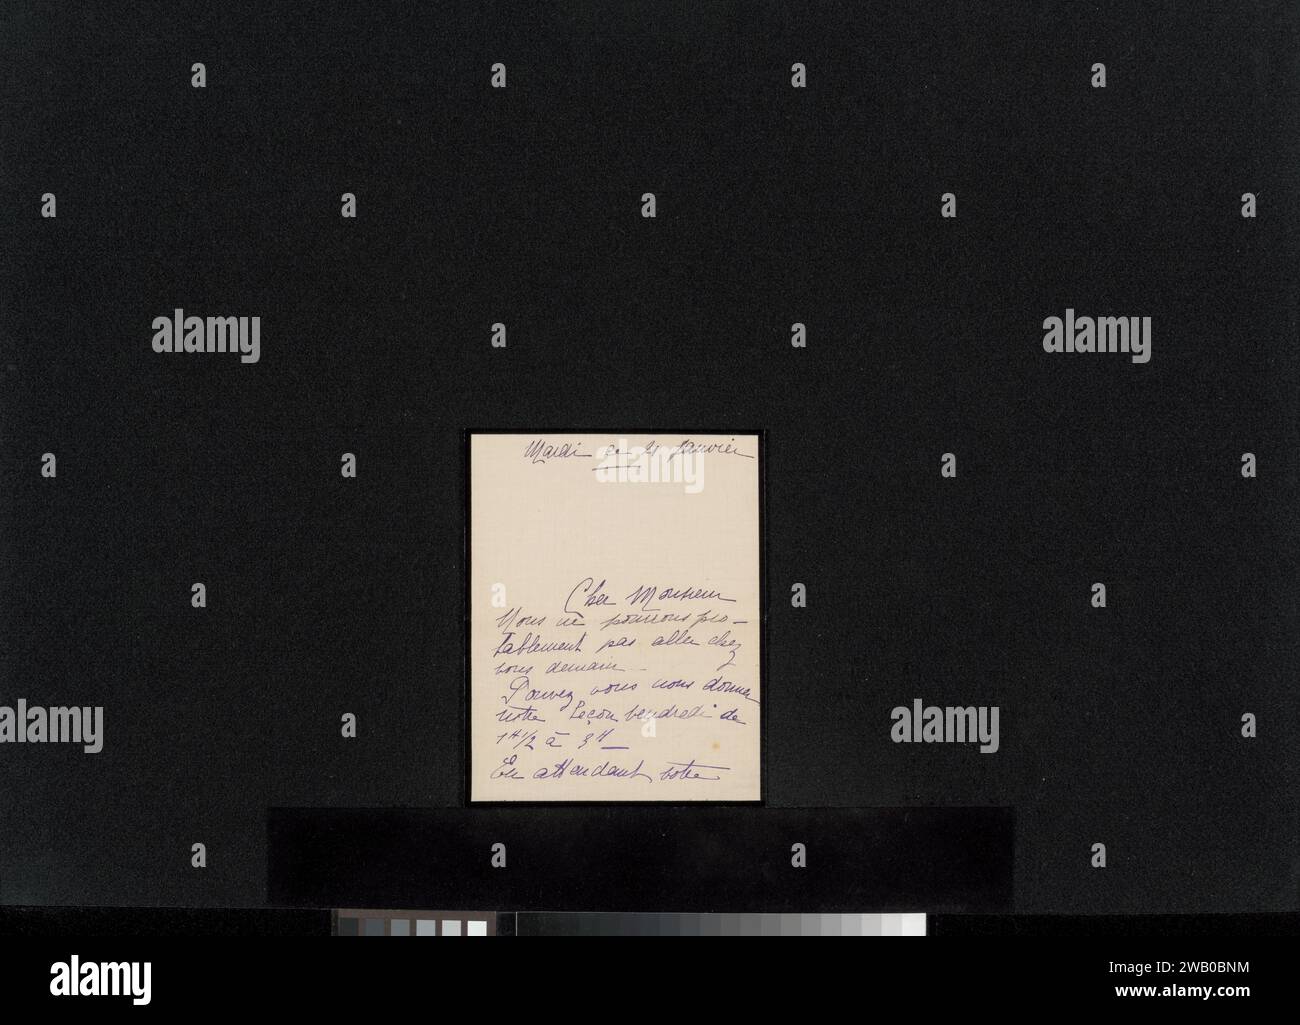 Mardi ce 21 Janvier
Cher Monsieur
Nous ne pourrons pro-
bablement pas aller chez
vous demain -
Pouvez vous nous donner
notre Leçon vendredi de
1H1/2 à 3H
En attendant votre
alamy
Image ID: 2WB0BNM
www.alamy.com